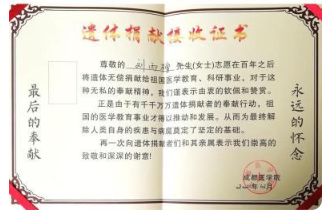 遗体捐献接收证书
尊敬的 先生(女士)志愿在百年之后
将遗体无偿捐献给祖国医学教育、科研事业。对于这
种无私的奉献精神,我们谨表示由衷的钦佩和赞赏。
正是由于有千千万万遗体捐献者的奉献行动,祖
国的医学教育事业才得以推动和发展。从而为最终解
除人类自身的疾患与病痛奠定了坚定的基础。
再一次向遗体捐献者们和其亲属表示我们崇高的
致敬和深深的谢意!
成都医学院
最后的奉献
永远的怀念